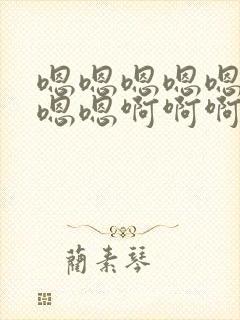 嗯嗯嗯嗯嗯
嗯嗯啊啊啊
蔺素琴